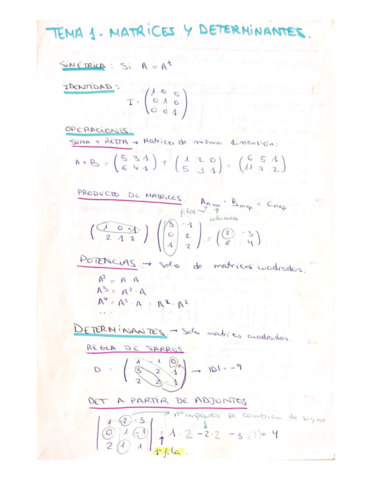 TEMA 1 - MATRICES Y DETERMINANTES.
SIMÉTRICA: Si A = Aᵗ
IDENTIDAD:
I = (1 0 0
0 1 0
0 0 1)
OPERACIONES
SUMA Y RESTA → Matrices de misma dimensión:
A+B = (5 3 1 / 6 4 1) + (1 2 0 / 5 3 1) = (6 5 1 / 11 7 2)
PRODUCTO DE MATRICES
fila columna
(1 0 -1 / 2 1 2) (3 1 / 0 2 / 1 1)
POTENCIAS → Solo de matrices cuadradas.
A² = A · A
A³ = A² · A
A⁴ = A³ · A = A² · A²
...
DETERMINANTES → Solo matrices cuadradas.
REGLA DE SARRUS
D = → |D| = -9
DET A PARTIR DE ADJUNTOS
→ Nº impares se cambian de signo
1ª fila